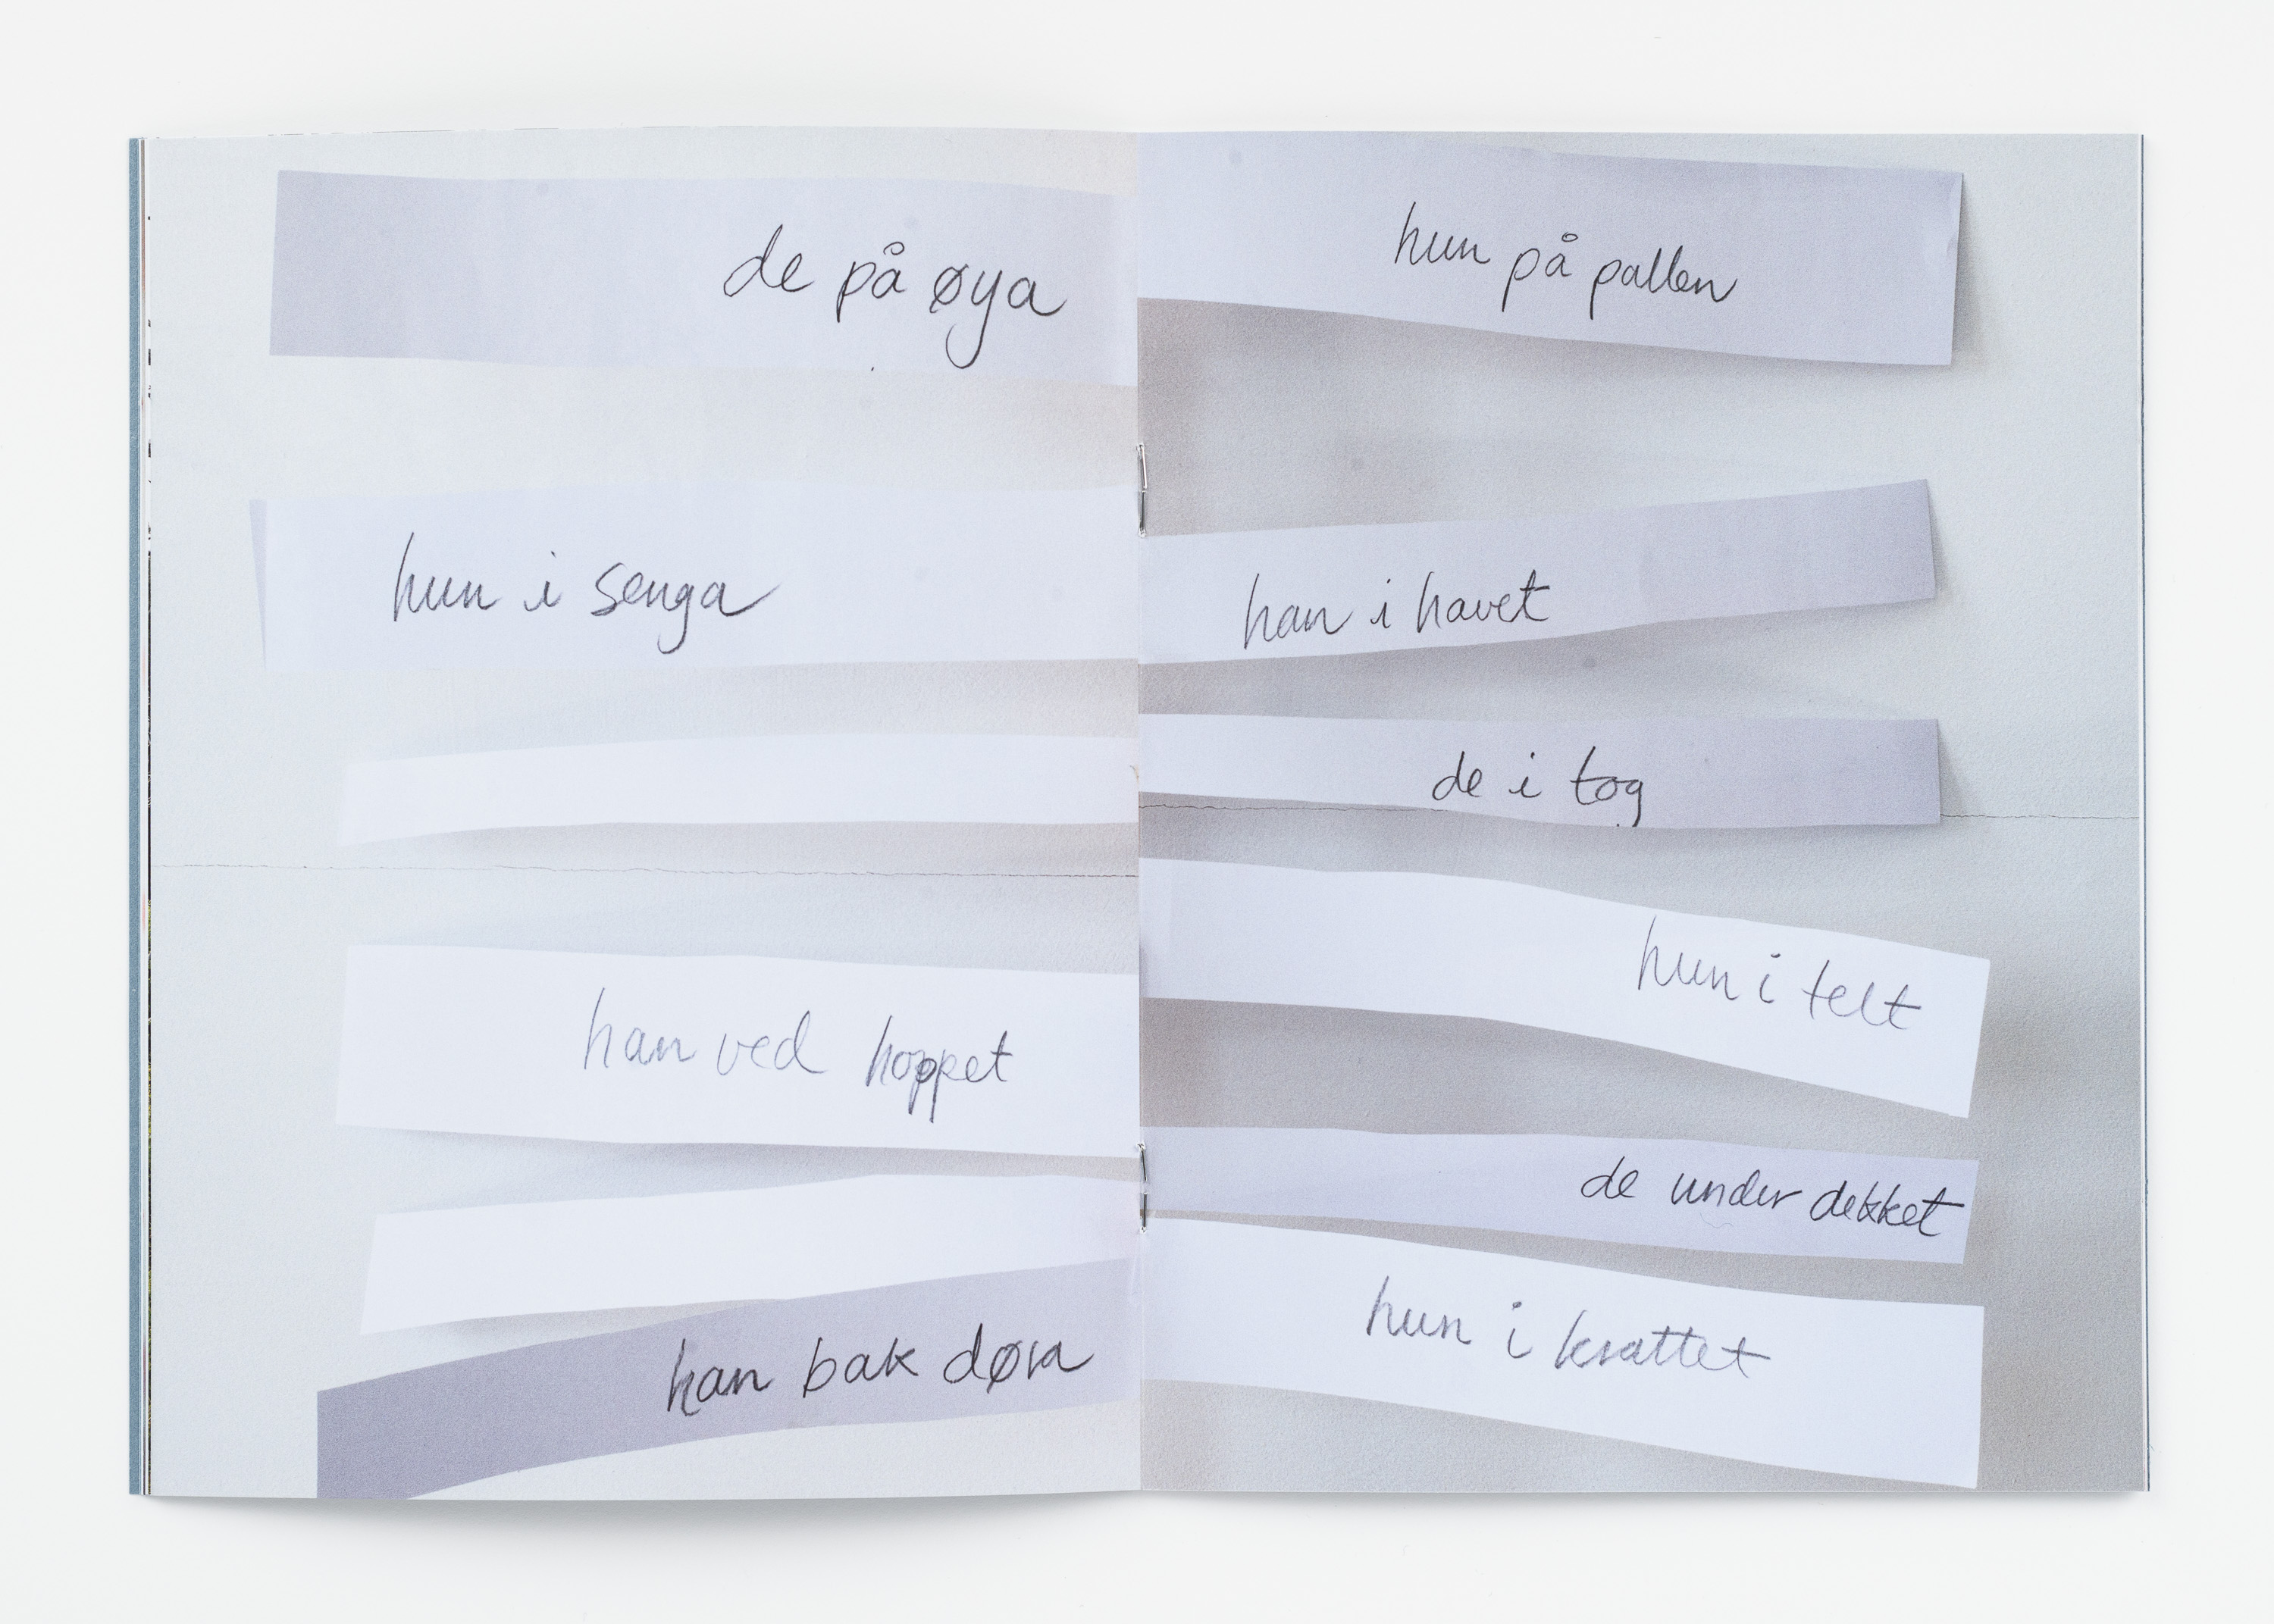 de på øya
hun i senga
han ved hoppet
han bak døra
hun på pallen
han i havet
de i tog
hun i telt
de under dekket
hun i krattet